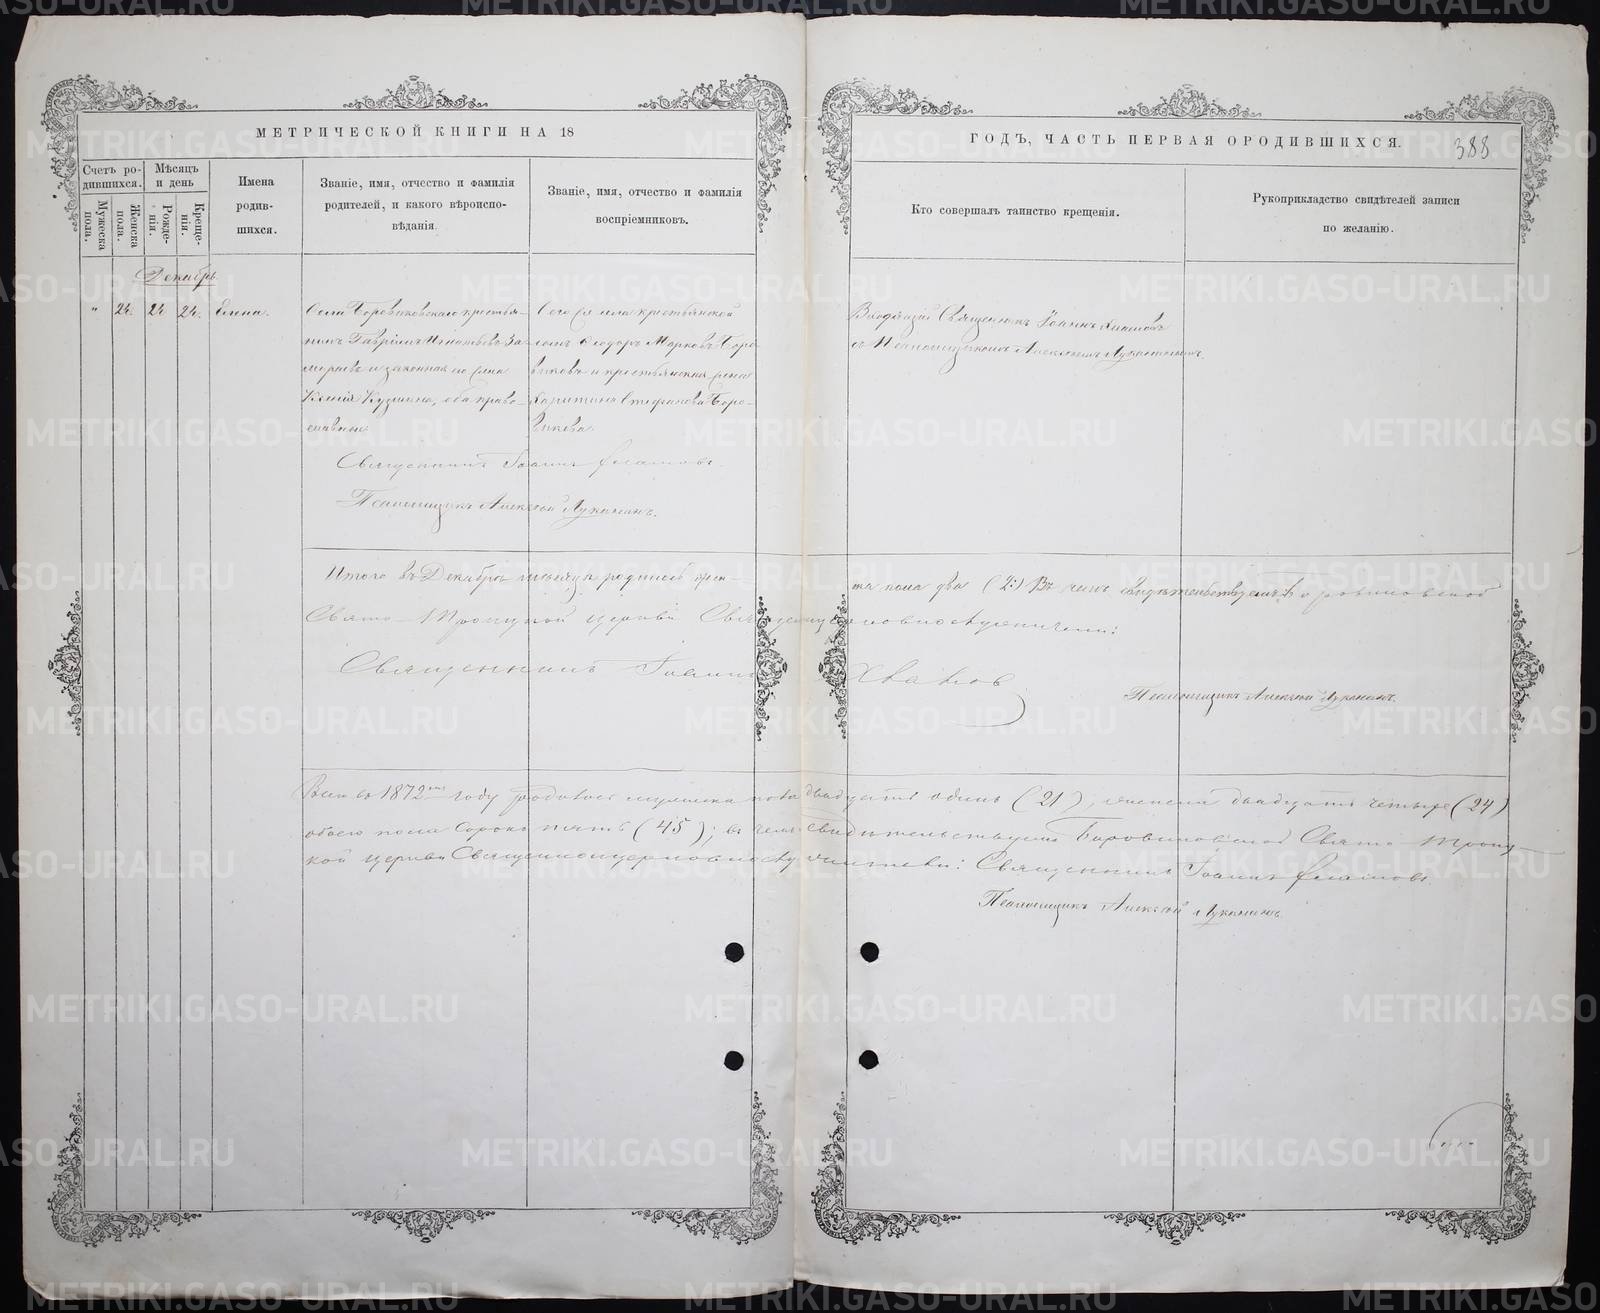 МЕТРИЧЕСКОЙ КНИГИ НА 18
ГОДЪ, ЧАСТЬ ПЕРВАЯ О РОДИВШИХСЯ.
388
Счетъ ро-
дившихся.
Мужеска
пола.
Женска
пола.
Мѣсяцъ
и день
Рожде-
нія.
Креще-
нія.
Имена
родив-
шихся.
Званіе, имя, отчество и фамилія
родителей, и какого вѣроиспо-
вѣданія.
Званіе, имя, отчество и фамилія
воспріемниковъ.
Кто совершалъ таинство крещенія.
Рукоприкладство свидѣтелей записи
по желанію.
Декабрь.
" 24. 24. 24. Елена.
Села Боровиковскаго крестья-
нинъ Гавріилъ Игнатьевъ За-
мораевъ и законная его жена
Ксенія Кузмина, оба право-
славные.
Того же села крестьянской
сынъ Ѳеодоръ Марковъ Боро-
виковъ и крестьянская жена
Харитина Стефанова Боро-
викова.
Священникъ Іоаннъ Хватовъ
съ Псаломщикомъ Алексѣемъ Луканинымъ.
Священникъ Іоаннъ
Псаломщикъ Алексѣй Луканинъ.
Итого въ Декабрѣ мѣсяцѣ родилось жен-
ска пола два (2:) Въ чемъ свидѣтельствуемъ Боровиковской
Свято-Троицкой церкви Священноцерковнослужители:
Священникъ Іоаннъ Хватов
Псаломщикъ Алексѣй Луканинъ.
Всего въ 1872мъ году родилось мужеска пола двадцать одинъ (21), женска двадцать четыре (24)
обоего пола сорокъ пять (45); въ чемъ свидѣтельствуемъ Боровиковской Свято-Троиц-
кой церкви Священноцерковнослужители: Священникъ Іоаннъ
Псаломщикъ Алексѣй Луканинъ.
METRIKI.GASO-URAL.RU